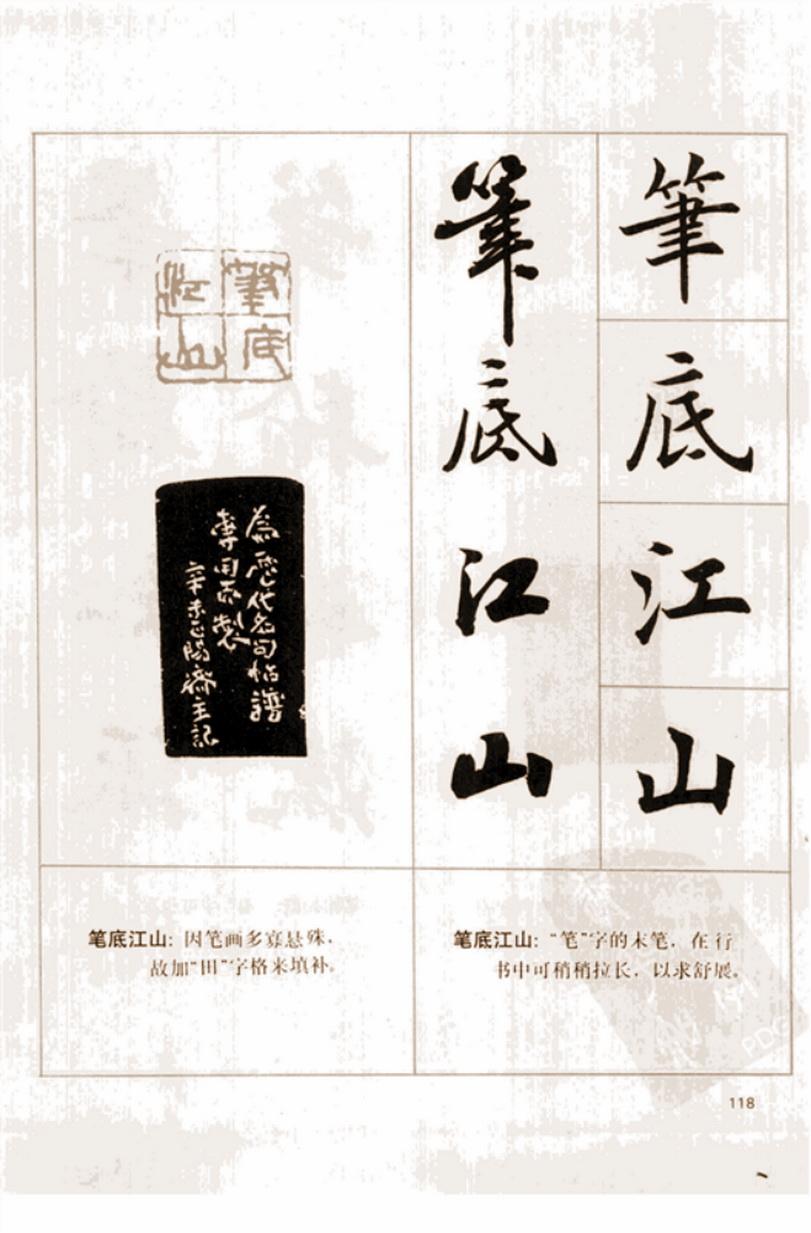 筆底江山
筆底江山
筆底
江山
為歷代名句帖譜
專用而製
辛未正陽齋主記
笔底江山：“笔”字的末笔，在行
书中可稍稍拉长，以求舒展。
笔底江山：因笔画多寡悬殊，
故加“田”字格来填补。
118
PDG